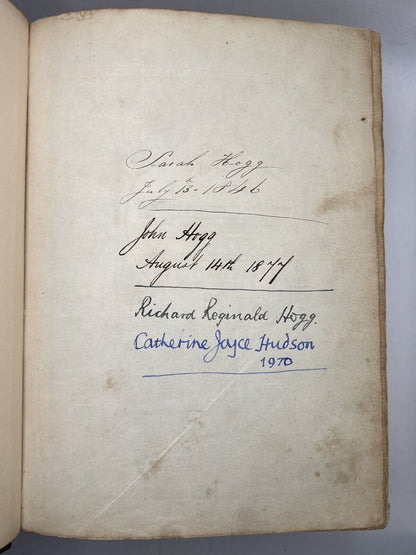 Sarah Hogg
July 13 - 1846
John Hogg
August 14th 1877
Richard Reginald Hogg.
Catherine Joyce Hudson
1970